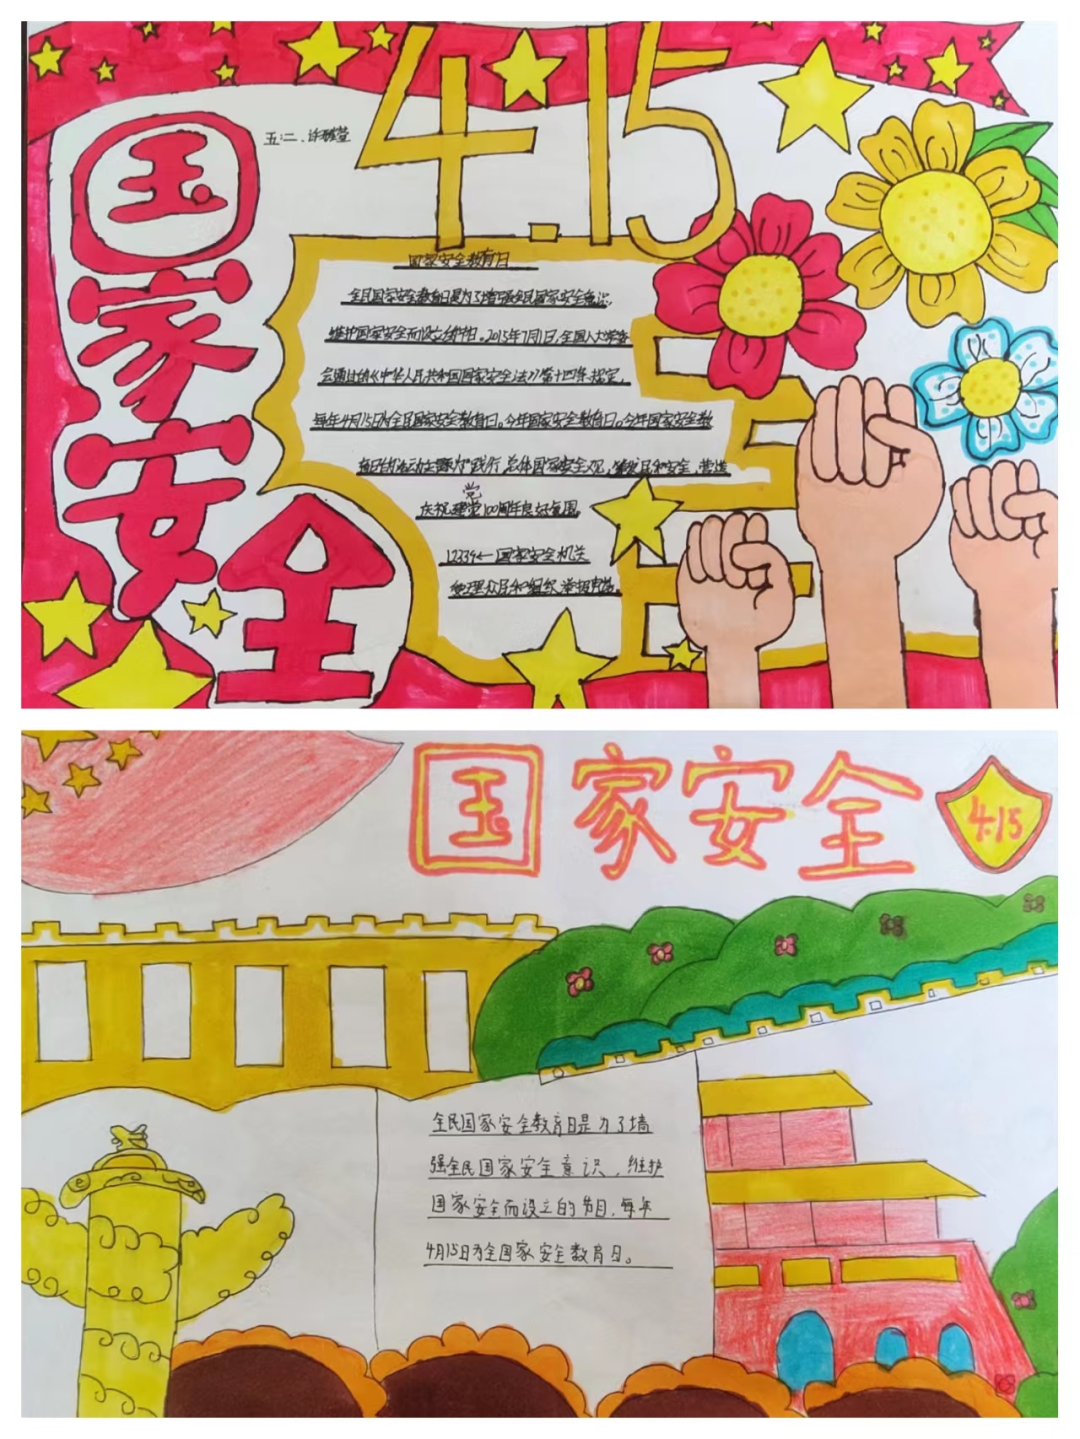 国家安全
五:二、
4.15
国家安全教育日
全民国家安全教育日是为了增强全民国家安全意识,
维护国家安全而设立的节日。2015年7月1日,全国人大常委
会通过的《中华人民共和国国家安全法》第十四条规定,
每年4月15日为全民国家安全教育日。今年国家安全教育日。今年国家安全教
育日的活动主题为"践行总体国家安全观,统筹发展和安全,营造
庆祝建党100周年良好氛围
12339←国家安全机关
受理公民和组织举报电话。
国家安全
4.15
全民国家安全教育日是为了墙
强全民国家安全意识,维护
国家安全而设立的节日,每年
4月15日为全国家安全教育日。